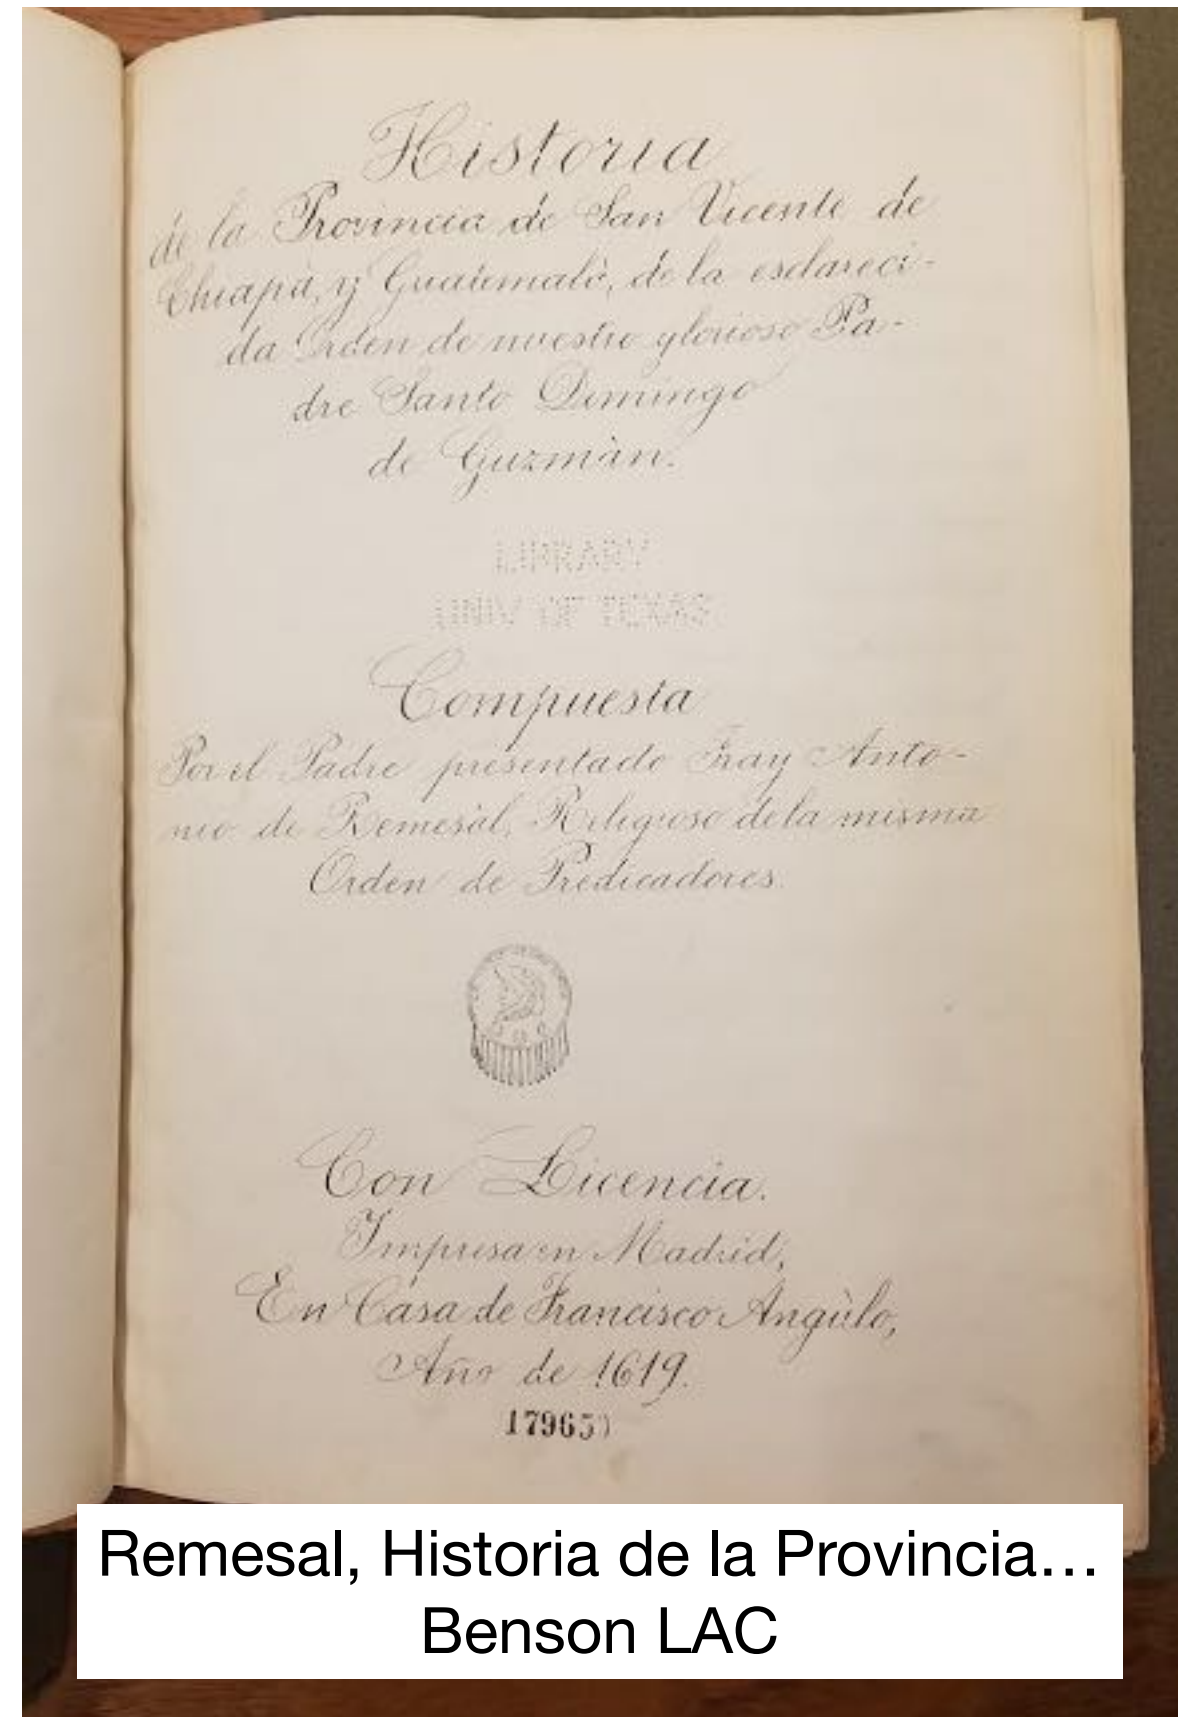 Historia
de la Provincia de San Vicente de
Chiapa, y Guatemala, de la esclareci-
da Orden de nuestro glorioso Pa-
dre Santo Domingo
de Guzmàn.
LIBRARY
UNIV OF TEXAS
Compuesta
Por el Padre presentado Fray Anto-
nio de Remesal, Religioso de la misma
Orden de Predicadores.
Con Licencia.
Impresa en Madrid,
En Casa de Francisco Angùlo,
Año de 1619.
17965
Remesal, Historia de la Provincia…
Benson LAC